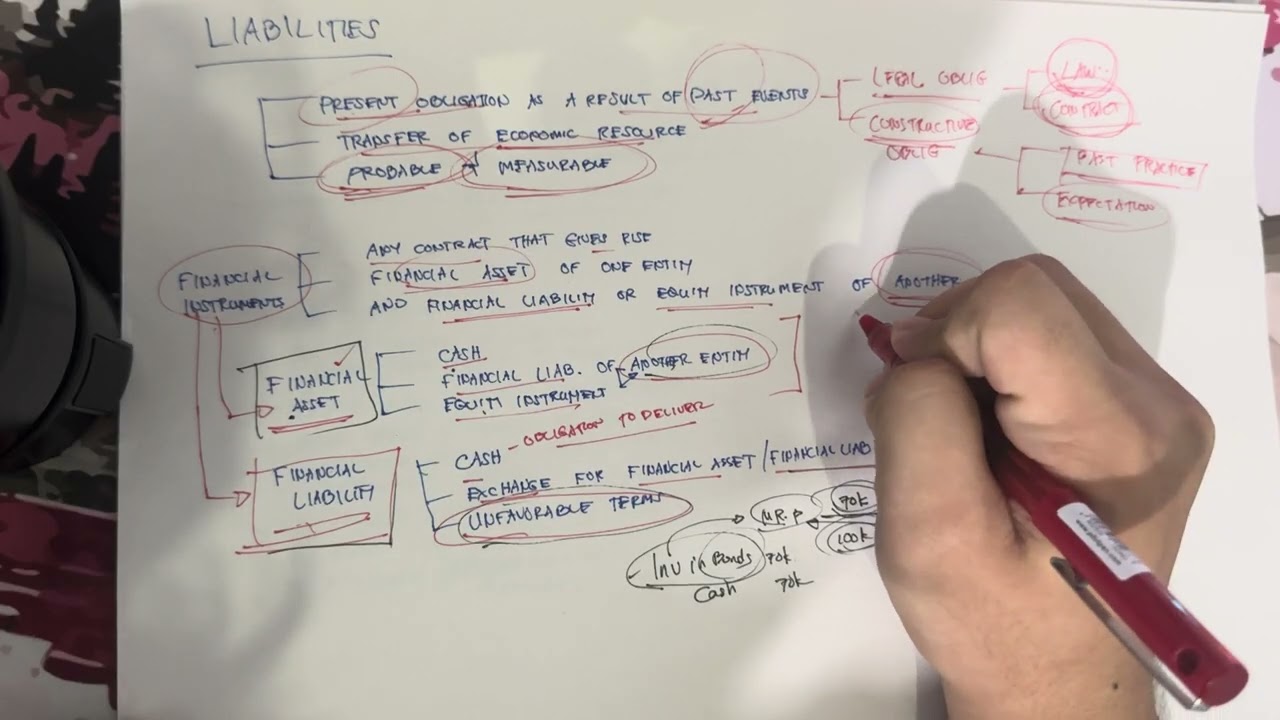 LIABILITIES
PRESENT OBLIGATION AS A RESULT OF PAST EVENTS
LEGAL OBLIG
LAW
CONTRACT
TRANSFER OF ECONOMIC RESOURCE
CONSTRUCTIVE
OBLIG
PROBABLE + MEASURABLE
PAST PRACTICE
EXPECTATION
FINANCIAL
INSTRUMENTS
ANY CONTRACT THAT GIVES RISE
FINANCIAL ASSET OF ONE ENTITY
AND FINANCIAL LIABILITY OR EQUITY INSTRUMENT OF ANOTHER
FINANCIAL
ASSET
CASH
FINANCIAL LIAB. OF ANOTHER ENTITY
EQUITY INSTRUMENT
FINANCIAL
LIABILITY
CASH - OBLIGATION TO DELIVER
EXCHANGE FOR FINANCIAL ASSET / FINANCIAL LIAB
UNFAVORABLE TERMS
N.R.P
70k
100k
Inv in Bonds 70k
Cash 70k